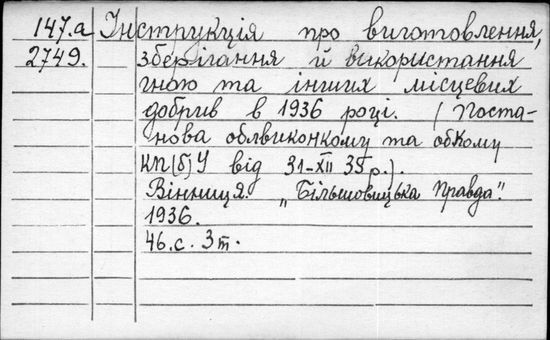 147.а Інструкція про виготовлення,
2749. зберігання й використання
гною та інших місцевих
добрив в 1936 році. (Поста-
нова облвиконкому та обкому
КП(б)У від 31-XII 35 р.).
Вінниця. „Більшовицька Правда".
1936.
46.с. 3т.